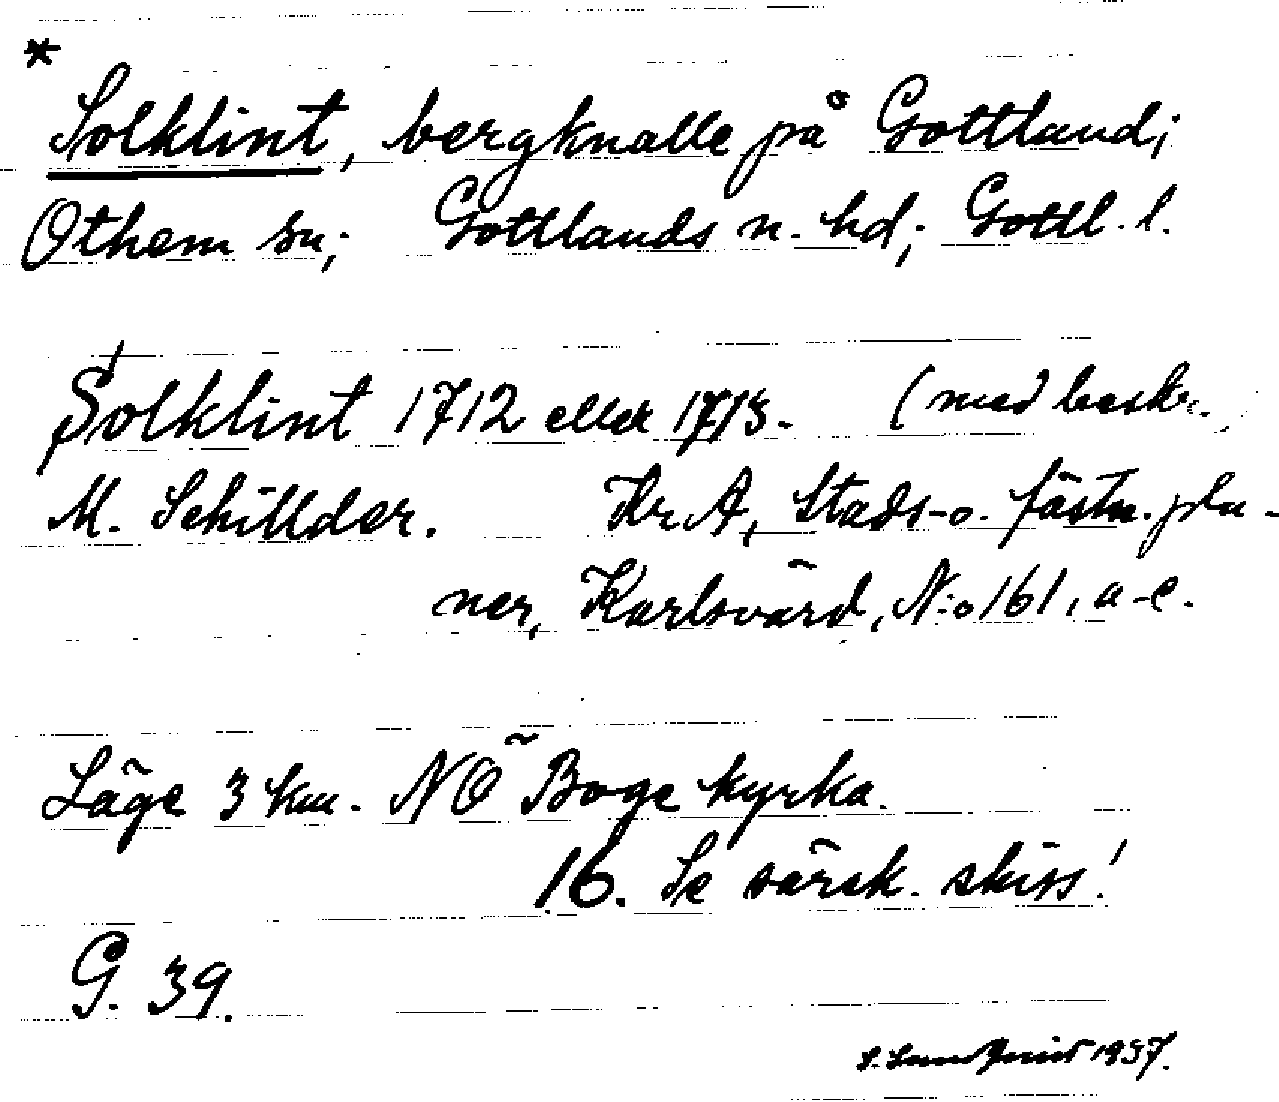 *
Solklint, bergknalle på Gottland;
Othem sn; Gottlands n. hd; Gottl. l.
Solklint 1712 eller 1713. (med beskr.
M. Schilder. Kr A, Stads- o. fästn. pla-
ner, Karlsvärd, N:o 161, a-e.
Läge 3 km. NO Boge kyrka.
16. Se särsk. skiss!
G. 39.
S. Landquist 1937.